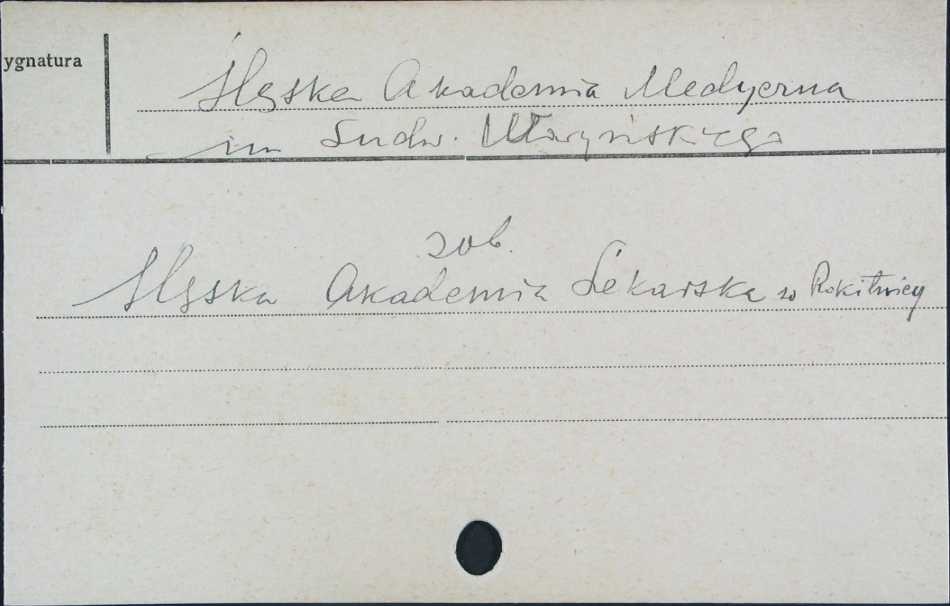 ygnatura
Śląska Akademia Medyczna
im Ludw. Waryńskiego
zob.
Śląska Akademia Lekarska w Rokitnicy